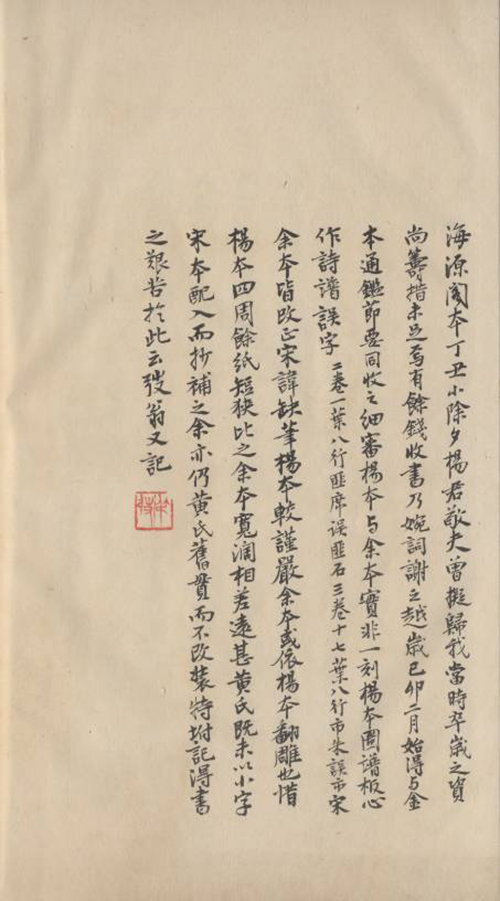 海源閣本丁丑小除夕楊君敬夫曾擬歸我當時卒歲之資
尚籌措未足焉有餘錢收書乃婉詞謝之越歲己卯二月始得与金
本通鑑節要同收之細審楊本与余本實非一刻楊本圖譜板心
作詩譜誤字二卷一葉八行匪席误匪石三卷十七葉八行市朱誤市宋
余本皆改正宋諱缺筆楊本較謹嚴余本或依楊本翻雕也惜
楊本四周餘紙短狹比之余本寬闊相差遠甚黃氏既未以小字
宋本配入而抄補之余亦仍黃氏舊貫而不改裝特坿記得書
之艱苦於此云弢翁又記